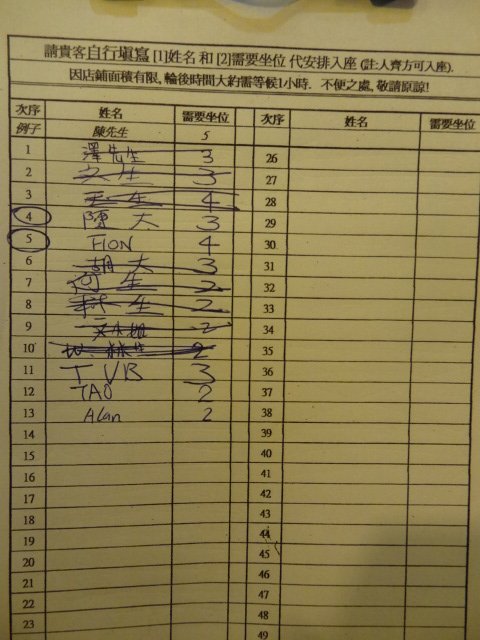 請貴客自行填寫 [1]姓名 和 [2]需要坐位 代安排入座 (註:人齊方可入座).
因店鋪面積有限, 輪後時間大約需等候1小時. 不便之處, 敬請原諒!
次序 姓名 需要坐位 次序 姓名 需要坐位
例子 陳先生 5
1 澤先生 3 26
2 文生 3 27
3 王生 4 28
4 陳大 3 29
5 FION 4 30
6 胡大 3 31
7 何生 2 32
8 林生 2 33
9 小姐 2 34
10 林生 2 35
11 TVB 3 36
12 TAO 2 37
13 Alan 2 38
14 39
15 40
16 41
17 42
18 43
19 44
20 45
21 46
22 47
23 48
49